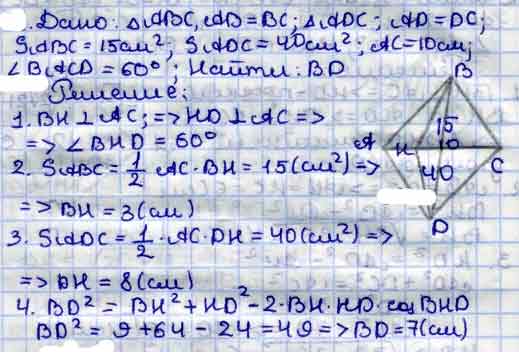 Дано: △ABC, AB = BC; △ADC; AD = DC;
S△ABC = 15 см²; S△ADC = 40 см²; AC = 10 см;
∠BACD = 60°; Найти: BD
Решение:
1. BH ⊥ AC; => HD ⊥ AC =>
=> ∠BHD = 60°
2. S△ABC = 1/2 AC · BH = 15 (см²) =>
=> BH = 3 (см)
3. S△ADC = 1/2 · AC · DH = 40 (см²) =>
=> DH = 8 (см)
4. BD² = BH² + HD² - 2 · BH · HD · cos BHD
BD² = 9 + 64 - 24 = 49 => BD = 7 (см)
B
15
A
H
10
C
40
D